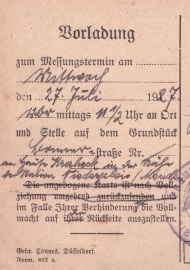 Vorladung
zum Messungstermin am
Mittwoch
den 27. Juli 1927
vor mittags 11 1/2 Uhr an Ort
und Stelle auf dem Grundstück
Bonner-straße Nr.
in der Nähe
der Station
Die angebogene Karte ist nach Voll-
ziehung umgehend zurückzusenden und
im Falle Ihrer Verhinderung die Voll-
macht auf ihrer Rückseite auszustellen.
Gebr. Tönnes, Düsseldorf.
Form. 823 a.